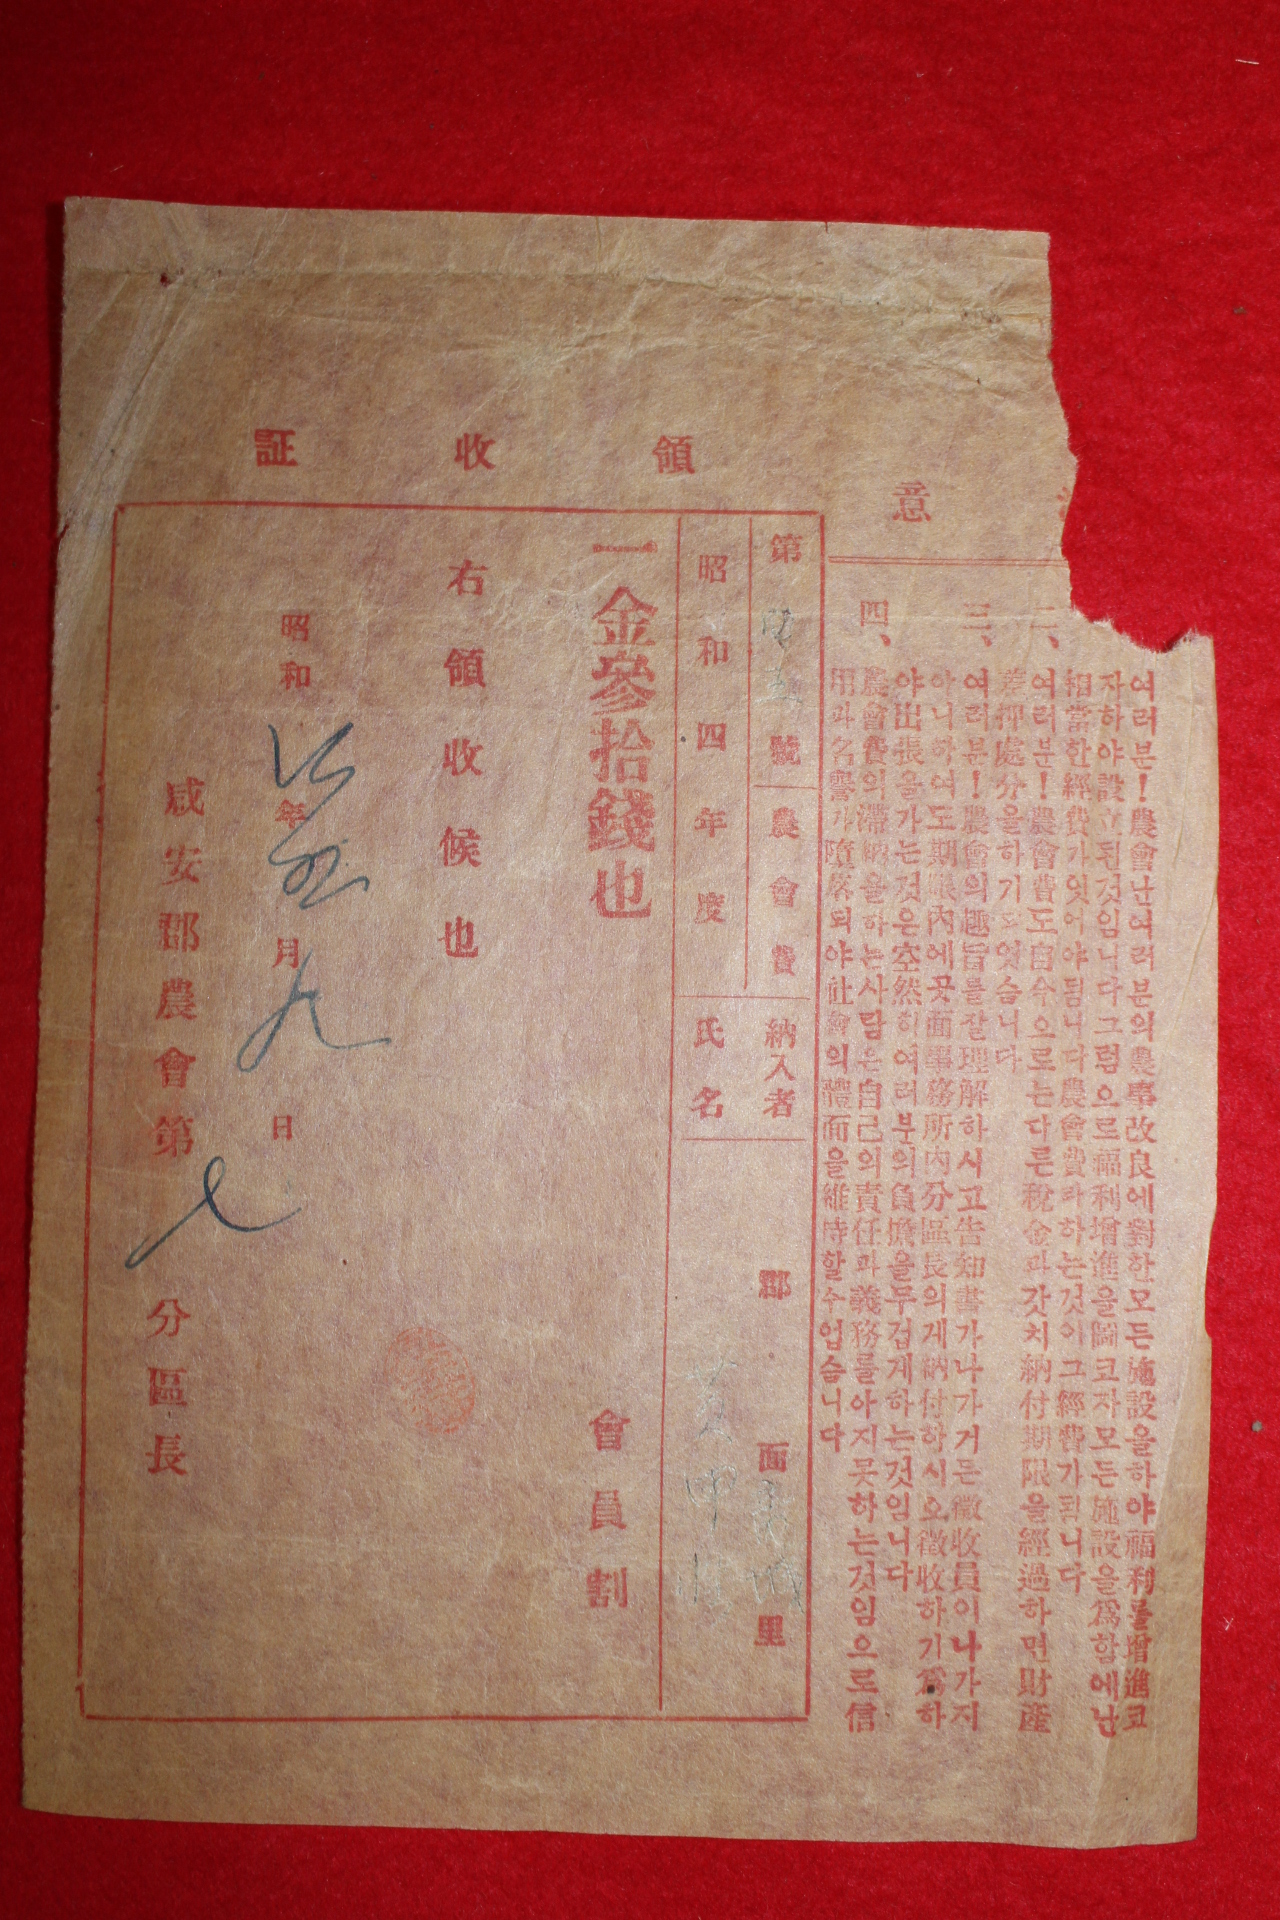 意
여러분!農會난여러분의農事改良에對한모든施設을하야福利를增進코
자하야設立된것임니다그럼으로福利增進을圖코자모든施設을爲함에난
相當한經費가잇어야됨니다農會費라하는것이그經費가됩니다
二、여러분!農會費도自今으로는다른稅金과갓치納付期限을經過하면財產
差押處分을하기되엿슴니다
三、여러분!農會의趣旨를잘理解하시고告知書가나가거든徵收員이나가지
아니하여도期限內에곳面事務所內分區長의게納付하시오徵收하기爲하
야出張을가는것은空然히여러분의負擔을무겁게하는것임니다
四、農會費의滯納을하는사람은自己의責任과義務를아지못하는것임으로信
用과名譽가墮落되야社會의體面을維持할수업슴니다
領收証
第 號 農會費 納入者 郡 面 里
昭和四年度 氏名
一金參拾錢也 會員割
右領收候也
昭和 年 月 九 日
咸安郡農會第 七 分區長